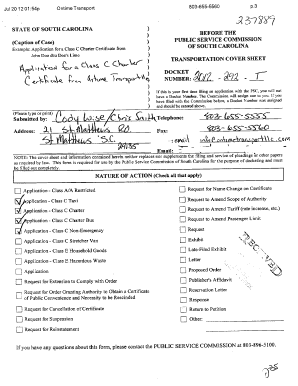 Jul 20 12 01:54p Ontime Transport 803-655-5560 p.3
237889
STATE OF SOUTH CAROLINA
(Caption of Case)
Example: Application for a Class C Charter Certificate from
John Doe dba Doe's Limo
Application for a Class C Charter
Certificate from Ontime Transporting
BEFORE THE
PUBLIC SERVICE COMMISSION
OF SOUTH CAROLINA
TRANSPORTATION COVER SHEET
DOCKET
NUMBER: 2012 - 292 - T
If this is your first time filing an application with the PSC, you will not
have a Docket Number. The Commission will assign one to you. If you
have filed with the Commission before, a Docket Number was assigned
and should be entered above.
(Please type or print)
Submitted by: Cody Wise/Chris Smith Telephone: 803-655-5555
Address: 21 St Matthews RD. Fax: 803-655-5560
St Matthews S.C. email info@ontimetransportllc.com
29135 Email:
NOTE: The cover sheet and information contained herein neither replaces nor supplements the filing and service of pleadings or other papers
as required by law. This form is required for use by the Public Service Commission of South Carolina for the purpose of docketing and must
be filled out completely.
NATURE OF ACTION (Check all that apply)
Application - Class A/A Restricted
Application - Class C Taxi
Application - Class C Charter
Application - Class C Charter Bus
Application - Class C Non-Emergency
Application - Class C Stretcher Van
Application - Class E Household Goods
Application - Class E Hazardous Waste
Application
Request for Extension to Comply with Order
Request for Order Granting Authority to Obtain a Certificate
of Public Convenience and Necessity to be Rescinded
Request for Cancellation of Certificate
Request for Suspension
Request for Reinstatement
Request for Name Change on Certificate
Request to Amend Scope of Authority
Request to Amend Tariff (rate increase, etc.)
Request to Amend Passenger Limit
Request
Exhibit
Late-Filed Exhibit
Letter
Proposed Order
Publisher's Affidavit
Reservation Letter
Response
Return to Petition
Other:
If you have any questions about this form, please contact the PUBLIC SERVICE COMMISSION at 803-896-5100.